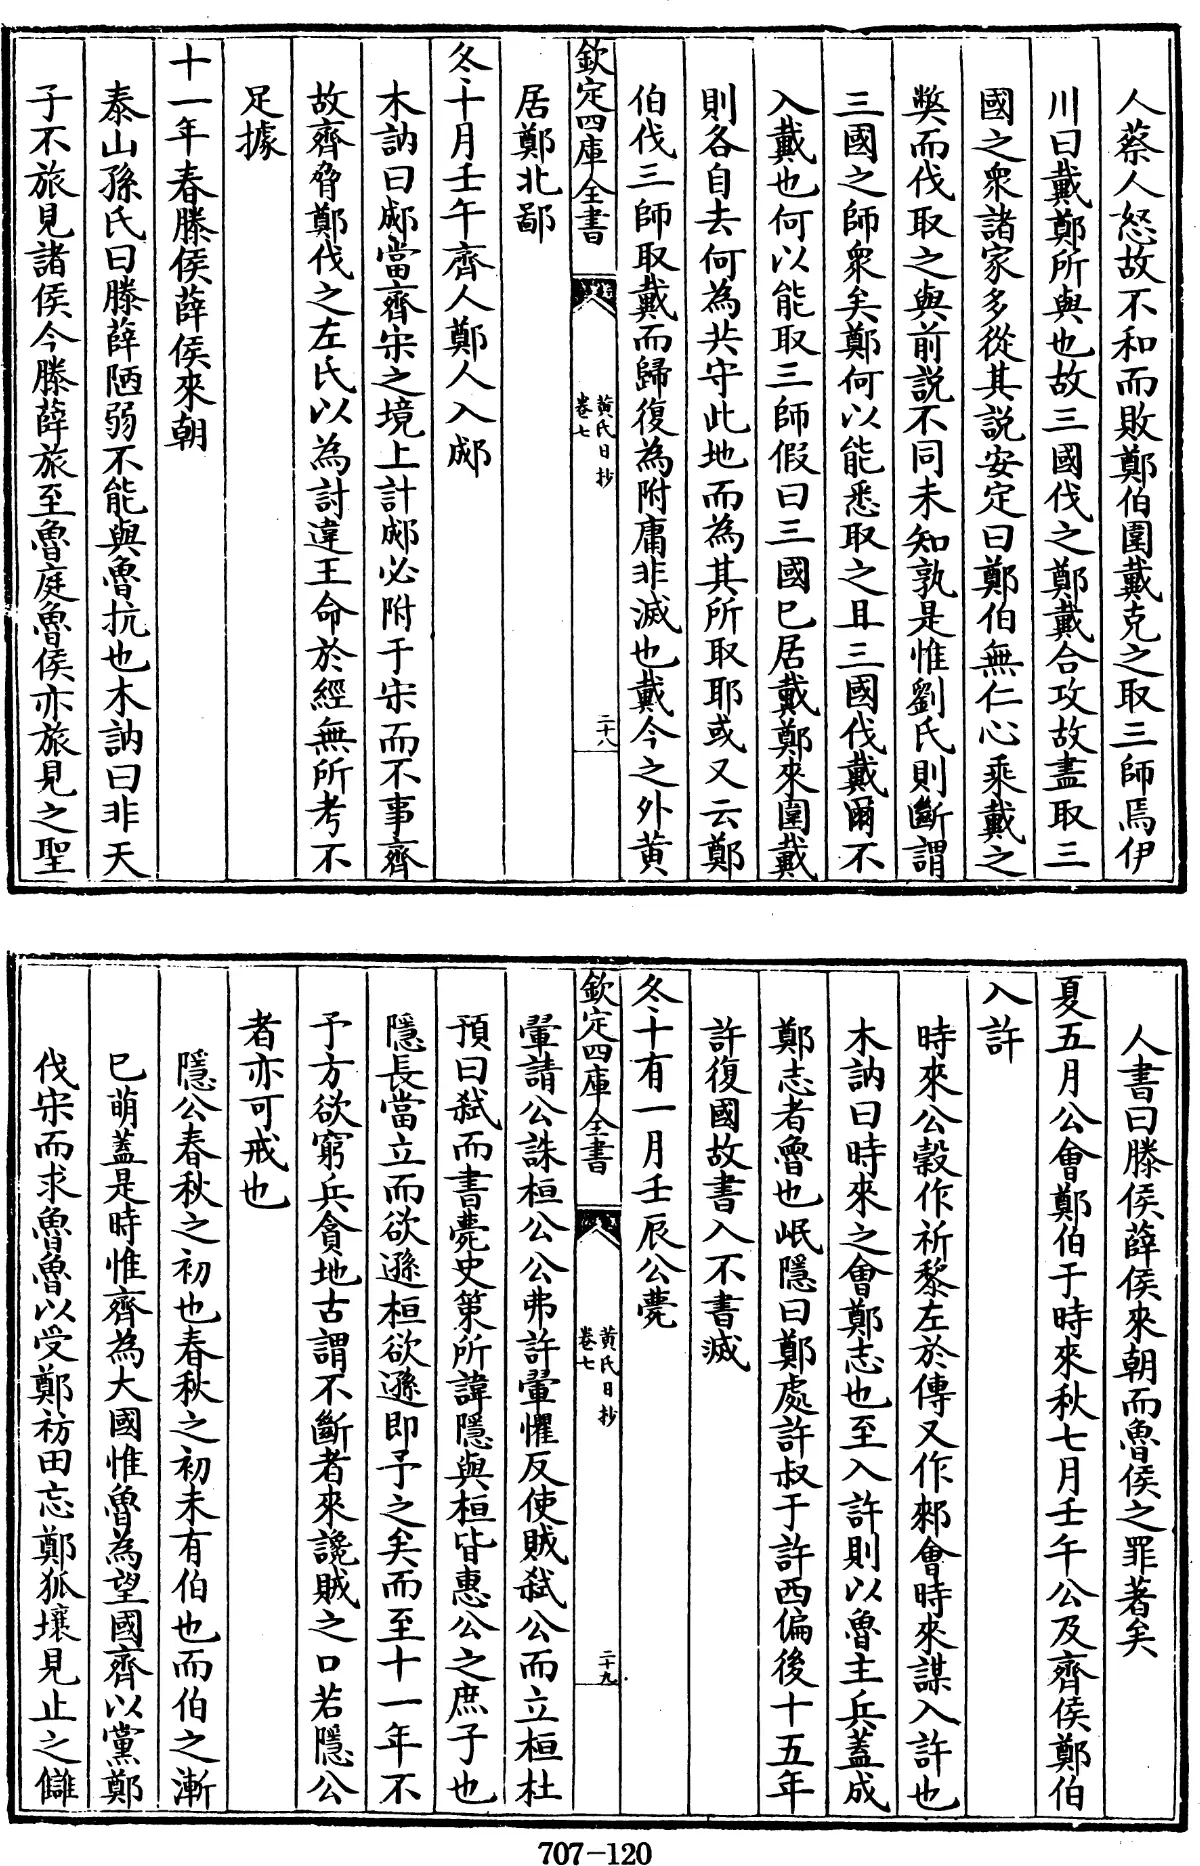 人蔡人怒故不和而敗鄭伯圍戴克之取三師焉伊
川曰戴鄭所與也故三國伐之鄭戴合攻故盡取三
國之衆諸家多從其説安定曰鄭伯無仁心乘戴之
弊而伐取之與前説不同未知孰是惟劉氏則斷謂
三國之師衆矣鄭何以能悉取之且三國伐戴爾不
入戴也何以能取三師假曰三國已居戴鄭來圍戴
則各自去何為共守此地而為其所取耶或又云鄭
伯伐三師取戴而歸復為附庸非滅也戴今之外黄
欽定四庫全書
黄氏日抄
卷七
二十八
居鄭北鄙
冬十月壬午齊人鄭人入郕
木訥曰郕當齊宋之境上計郕必附于宋而不事齊
故齊脅鄭伐之左氏以為討違王命於經無所考不
足據
十一年春滕侯薛侯來朝
泰山孫氏曰滕薛陋弱不能與魯抗也木訥曰非天
子不旅見諸侯今滕薛旅至魯庭魯侯亦旅見之聖
人書曰滕侯薛侯來朝而魯侯之罪著矣
夏五月公會鄭伯于時來秋七月壬午公及齊侯鄭伯
入許
時來公穀作祈黎左於傳又作郲會時來謀入許也
木訥曰時來之會鄭志也至入許則以魯主兵蓋成
鄭志者魯也岷隱曰鄭處許叔于許西偏後十五年
許復國故書入不書滅
冬十有一月壬辰公薨
欽定四庫全書
黄氏日抄
卷七
二十九
翬請公誅桓公公弗許翬懼反使賊弑公而立桓杜
預曰弑而書薨史策所諱隱與桓皆惠公之庶子也
隱長當立而欲遜桓欲遜即予之矣而至十一年不
予方欲窮兵貪地古謂不斷者來讒賊之口若隱公
者亦可戒也
隱公春秋之初也春秋之初未有伯也而伯之漸
已萌蓋是時惟齊為大國惟魯為望國齊以黨鄭
伐宋而求魯魯以受鄭祊田忘鄭狐壤見止之讎
707-120